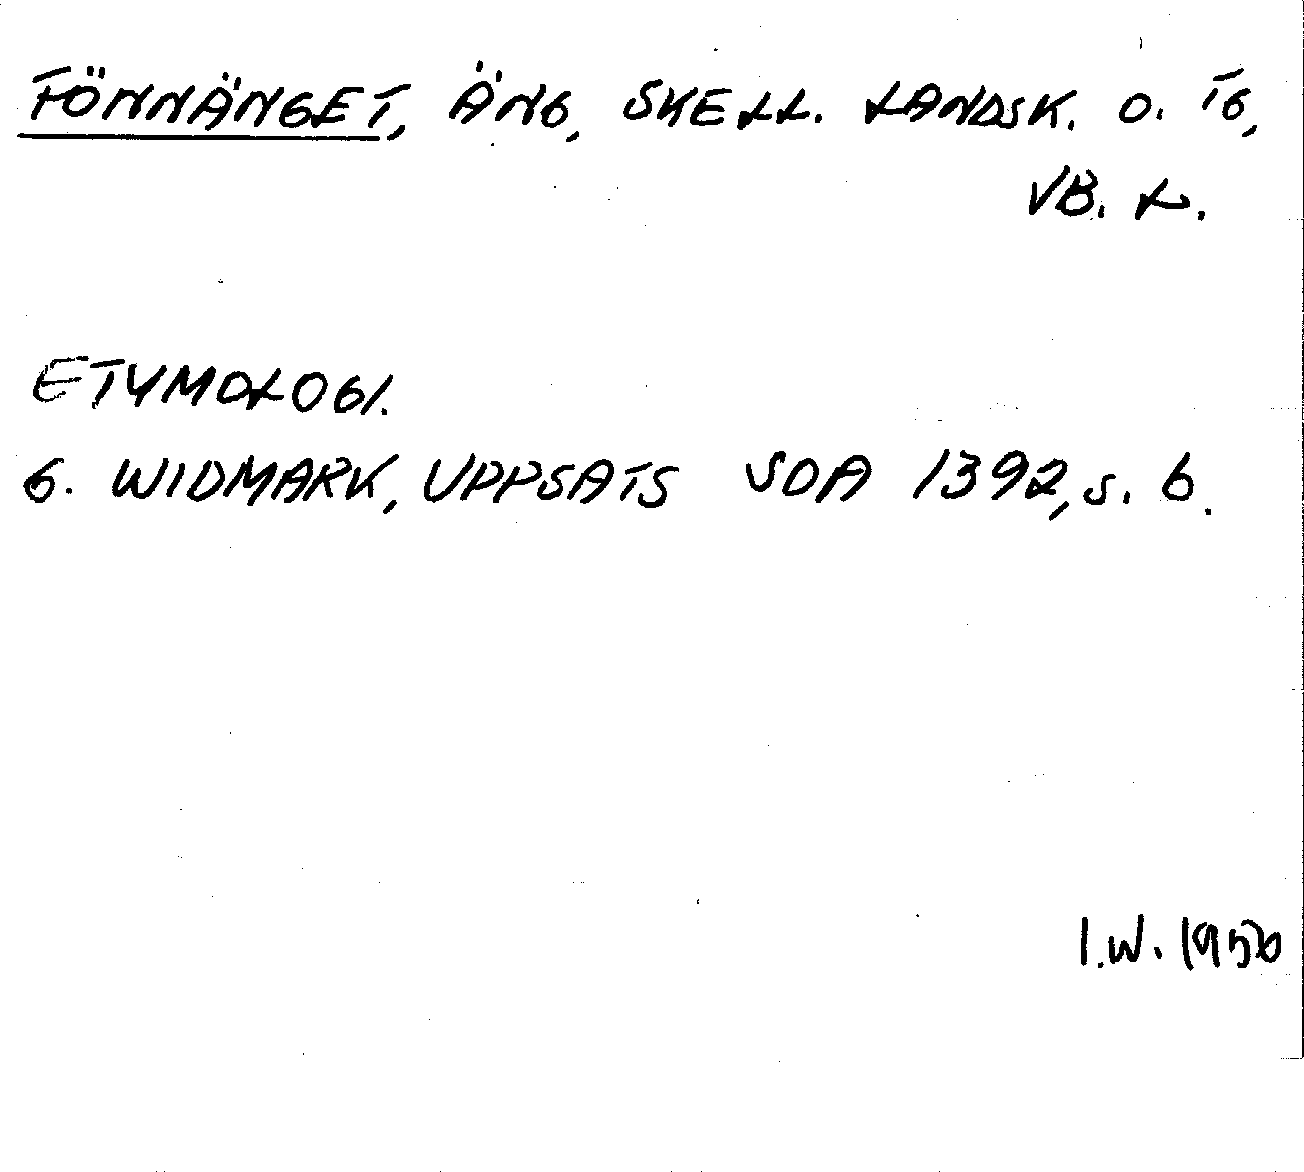 FÖNNÄNGET, ÄNG, SKELL. LANDSK. O. TG,
VB. L.
ETYMOLOGI.
G. WIDMARK, UPPSATS SOA 1392, S. 6.
I.W. 1956